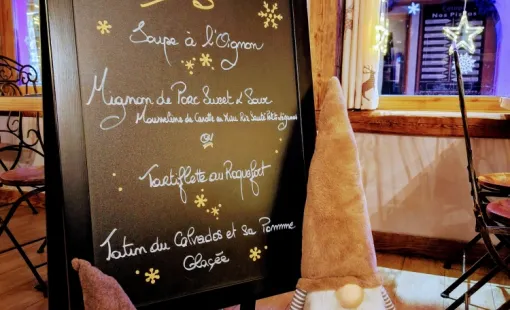 Soupe à l'Oignon
Mignon de Porc Sweet & Sour
Mousseline de Carotte en Miel Riz Sauté Petits Légumes
ou
Tartiflette au Roquefort
Tatin du Calvados et sa Pomme
Glaçée